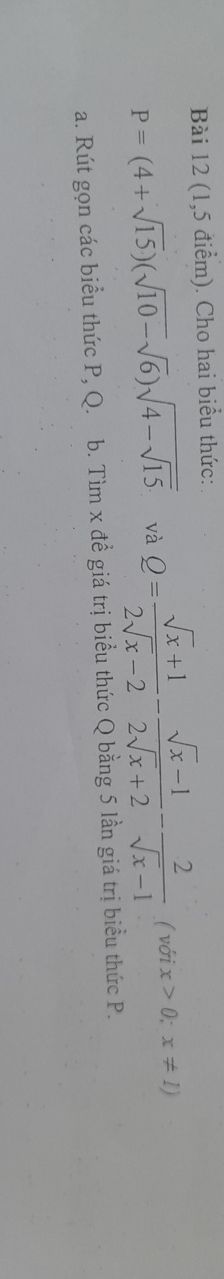 Bài 12 (1,5 điểm). Cho hai biểu thức:
P = (4+√15)(√10−√6)√(4−√15) và Q = (√x+1)/(2√x−2) − (√x−1)/(2√x+2) − 2/(√x−1) (với x > 0; x ≠ 1)
a. Rút gọn các biểu thức P, Q. b. Tìm x để giá trị biểu thức Q bằng 5 lần giá trị biểu thức P.